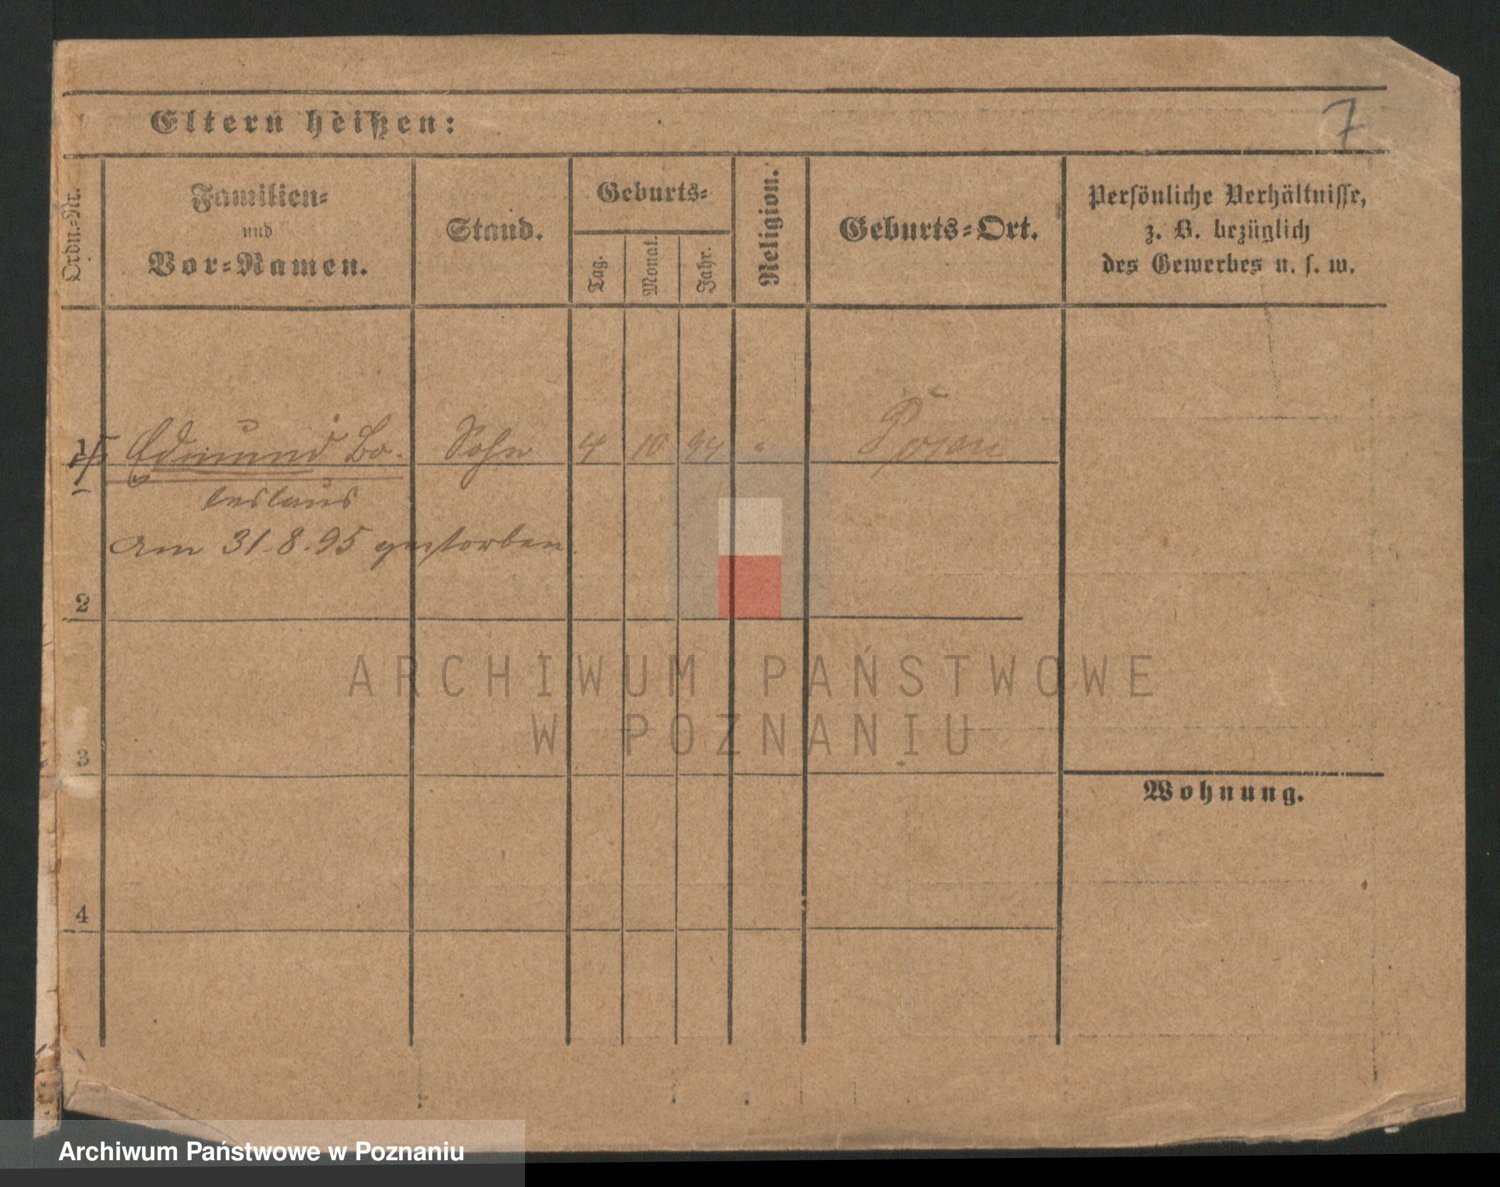 Eltern heißen:
7
Ordn.-Nr.
Familien-
und
Vor-Namen.
Stand.
Geburts-
Tag.
Monat.
Jahr.
Religion.
Geburts-Ort.
Persönliche Verhältnisse,
z. B. bezüglich
des Gewerbes u. s. w.
Edmund Bo- Sohn 4 10 94 " Posen
leslaus
am 31.8.95 gestorben.
2
3
4
Wohnung.
ARCHIWUM PAŃSTWOWE
W POZNANIU
Archiwum Państwowe w Poznaniu